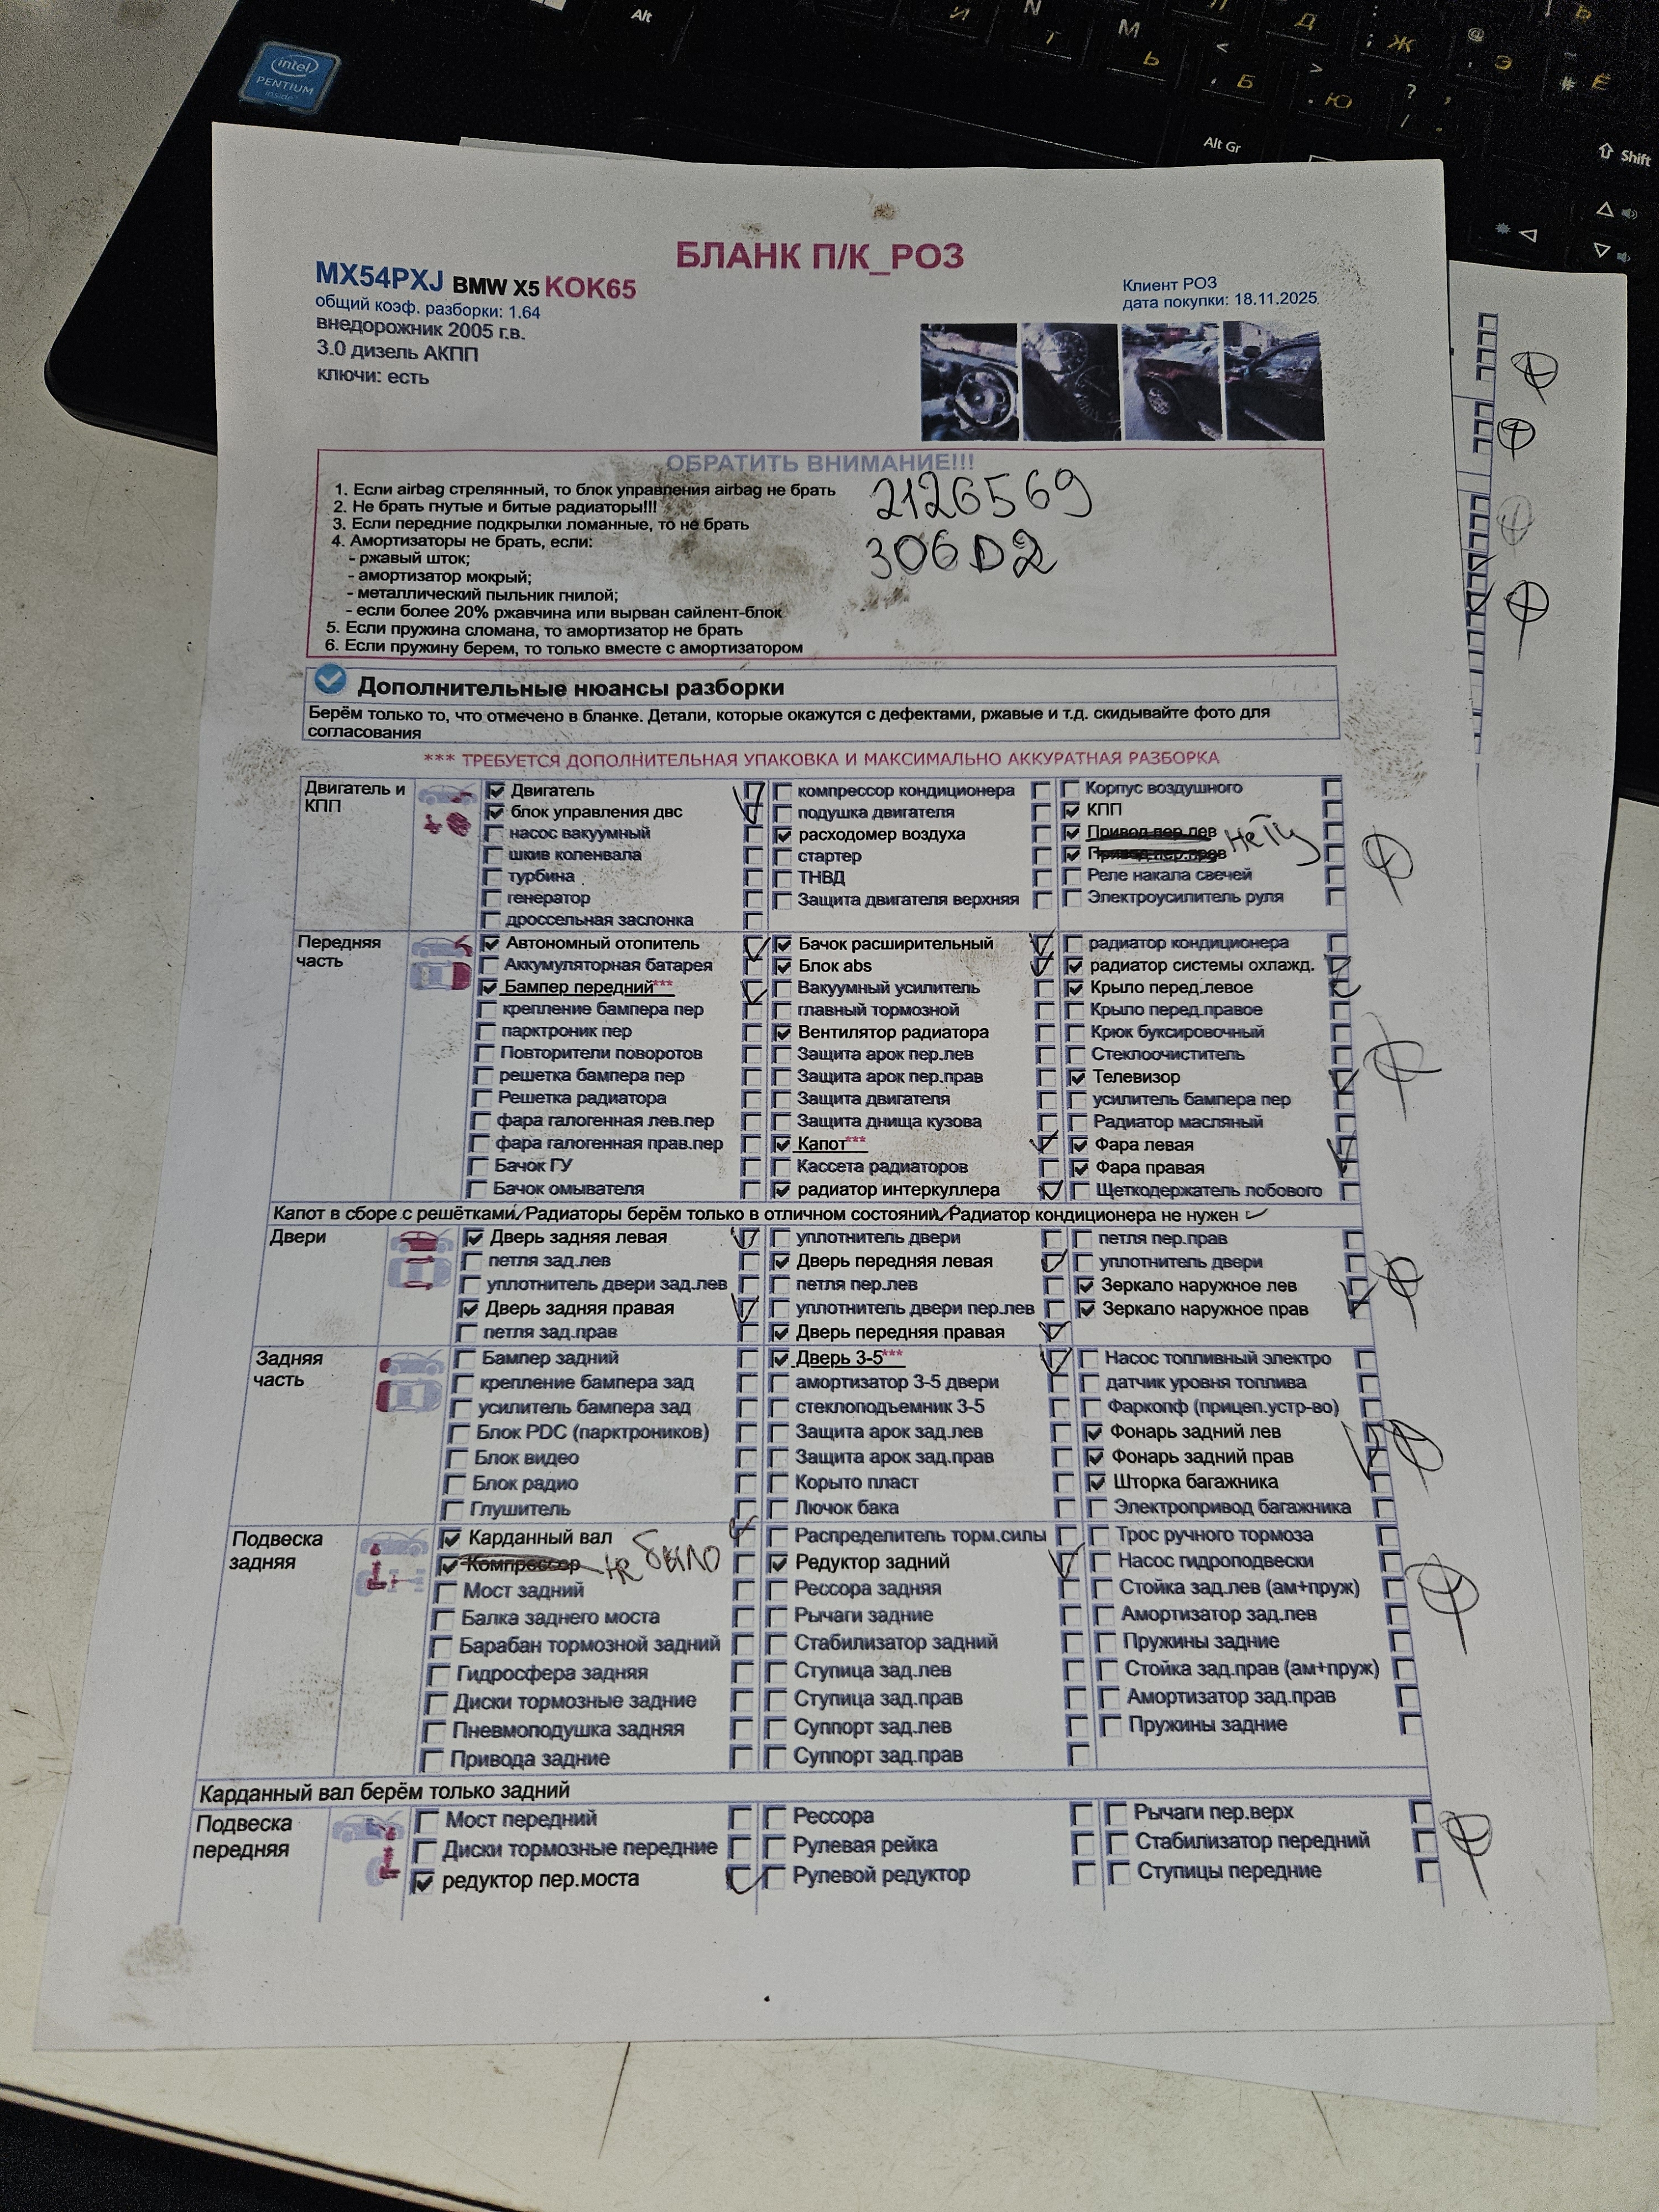 Alt
Alt Gr
Shift
intel
PENTIUM
inside
БЛАНК П/К_РОЗ
MX54PXJ BMW X5 KOK65
общий коэф. разборки: 1.64
внедорожник 2005 г.в.
3.0 дизель АКПП
ключи: есть
Клиент РОЗ
дата покупки: 18.11.2025
ОБРАТИТЬ ВНИМАНИЕ!!!
1. Если airbag стрелянный, то блок управления airbag не брать
2. Не брать гнутые и битые радиаторы!!!
3. Если передние подкрылки ломанные, то не брать
4. Амортизаторы не брать, если:
- ржавый шток;
- амортизатор мокрый;
- металлический пыльник гнилой;
- если более 20% ржавчина или вырван сайлент-блок
5. Если пружина сломана, то амортизатор не брать
6. Если пружину берем, то только вместе с амортизатором
2126569
306D2
Дополнительные нюансы разборки
Берём только то, что отмечено в бланке. Детали, которые окажутся с дефектами, ржавые и т.д. скидывайте фото для
согласования
*** ТРЕБУЕТСЯ ДОПОЛНИТЕЛЬНАЯ УПАКОВКА И МАКСИМАЛЬНО АККУРАТНАЯ РАЗБОРКА
Двигатель и
КПП
Двигатель
блок управления двс
насос вакуумный
шкив коленвала
турбина
генератор
дроссельная заслонка
компрессор кондиционера
подушка двигателя
расходомер воздуха
стартер
ТНВД
Защита двигателя верхняя
Корпус воздушного
КПП
Привод пер.лев
Привод пер.прав
нету
Реле накала свечей
Электроусилитель руля
Передняя
часть
Автономный отопитель
Аккумуляторная батарея
Бампер передний***
крепление бампера пер
парктроник пер
Повторители поворотов
решетка бампера пер
Решетка радиатора
фара галогенная лев.пер
фара галогенная прав.пер
Бачок ГУ
Бачок омывателя
Бачок расширительный
Блок abs
Вакуумный усилитель
главный тормозной
Вентилятор радиатора
Защита арок пер.лев
Защита арок пер.прав
Защита двигателя
Защита днища кузова
Капот***
Кассета радиаторов
радиатор интеркуллера
радиатор кондиционера
радиатор системы охлажд.
Крыло перед.левое
Крыло перед.правое
Крюк буксировочный
Стеклоочиститель
Телевизор
усилитель бампера пер
Радиатор масляный
Фара левая
Фара правая
Щеткодержатель лобового
Капот в сборе с решётками/Радиаторы берём только в отличном состоянии/Радиатор кондиционера не нужен
Двери
Дверь задняя левая
петля зад.лев
уплотнитель двери зад.лев
Дверь задняя правая
петля зад.прав
уплотнитель двери
Дверь передняя левая
петля пер.лев
уплотнитель двери пер.лев
Дверь передняя правая
петля пер.прав
уплотнитель двери
Зеркало наружное лев
Зеркало наружное прав
Задняя
часть
Бампер задний
крепление бампера зад
усилитель бампера зад
Блок PDC (парктроников)
Блок видео
Блок радио
Глушитель
Дверь 3-5***
амортизатор 3-5 двери
стеклоподъемник 3-5
Защита арок зад.лев
Защита арок зад.прав
Корыто пласт
Лючок бака
Насос топливный электро
датчик уровня топлива
Фаркопф (прицеп.устр-во)
Фонарь задний лев
Фонарь задний прав
Шторка багажника
Электропривод багажника
Подвеска
задняя
Карданный вал
Компрессор не было
Мост задний
Балка заднего моста
Барабан тормозной задний
Гидросфера задняя
Диски тормозные задние
Пневмоподушка задняя
Привода задние
Распределитель торм.силы
Редуктор задний
Рессора задняя
Рычаги задние
Стабилизатор задний
Ступица зад.лев
Ступица зад.прав
Суппорт зад.лев
Суппорт зад.прав
Трос ручного тормоза
Насос гидроподвески
Стойка зад.лев (ам+пруж)
Амортизатор зад.лев
Пружины задние
Стойка зад.прав (ам+пруж)
Амортизатор зад.прав
Пружины задние
Карданный вал берём только задний
Подвеска
передняя
Мост передний
Диски тормозные передние
редуктор пер.моста
Рессора
Рулевая рейка
Рулевой редуктор
Рычаги пер.верх
Стабилизатор передний
Ступицы передние